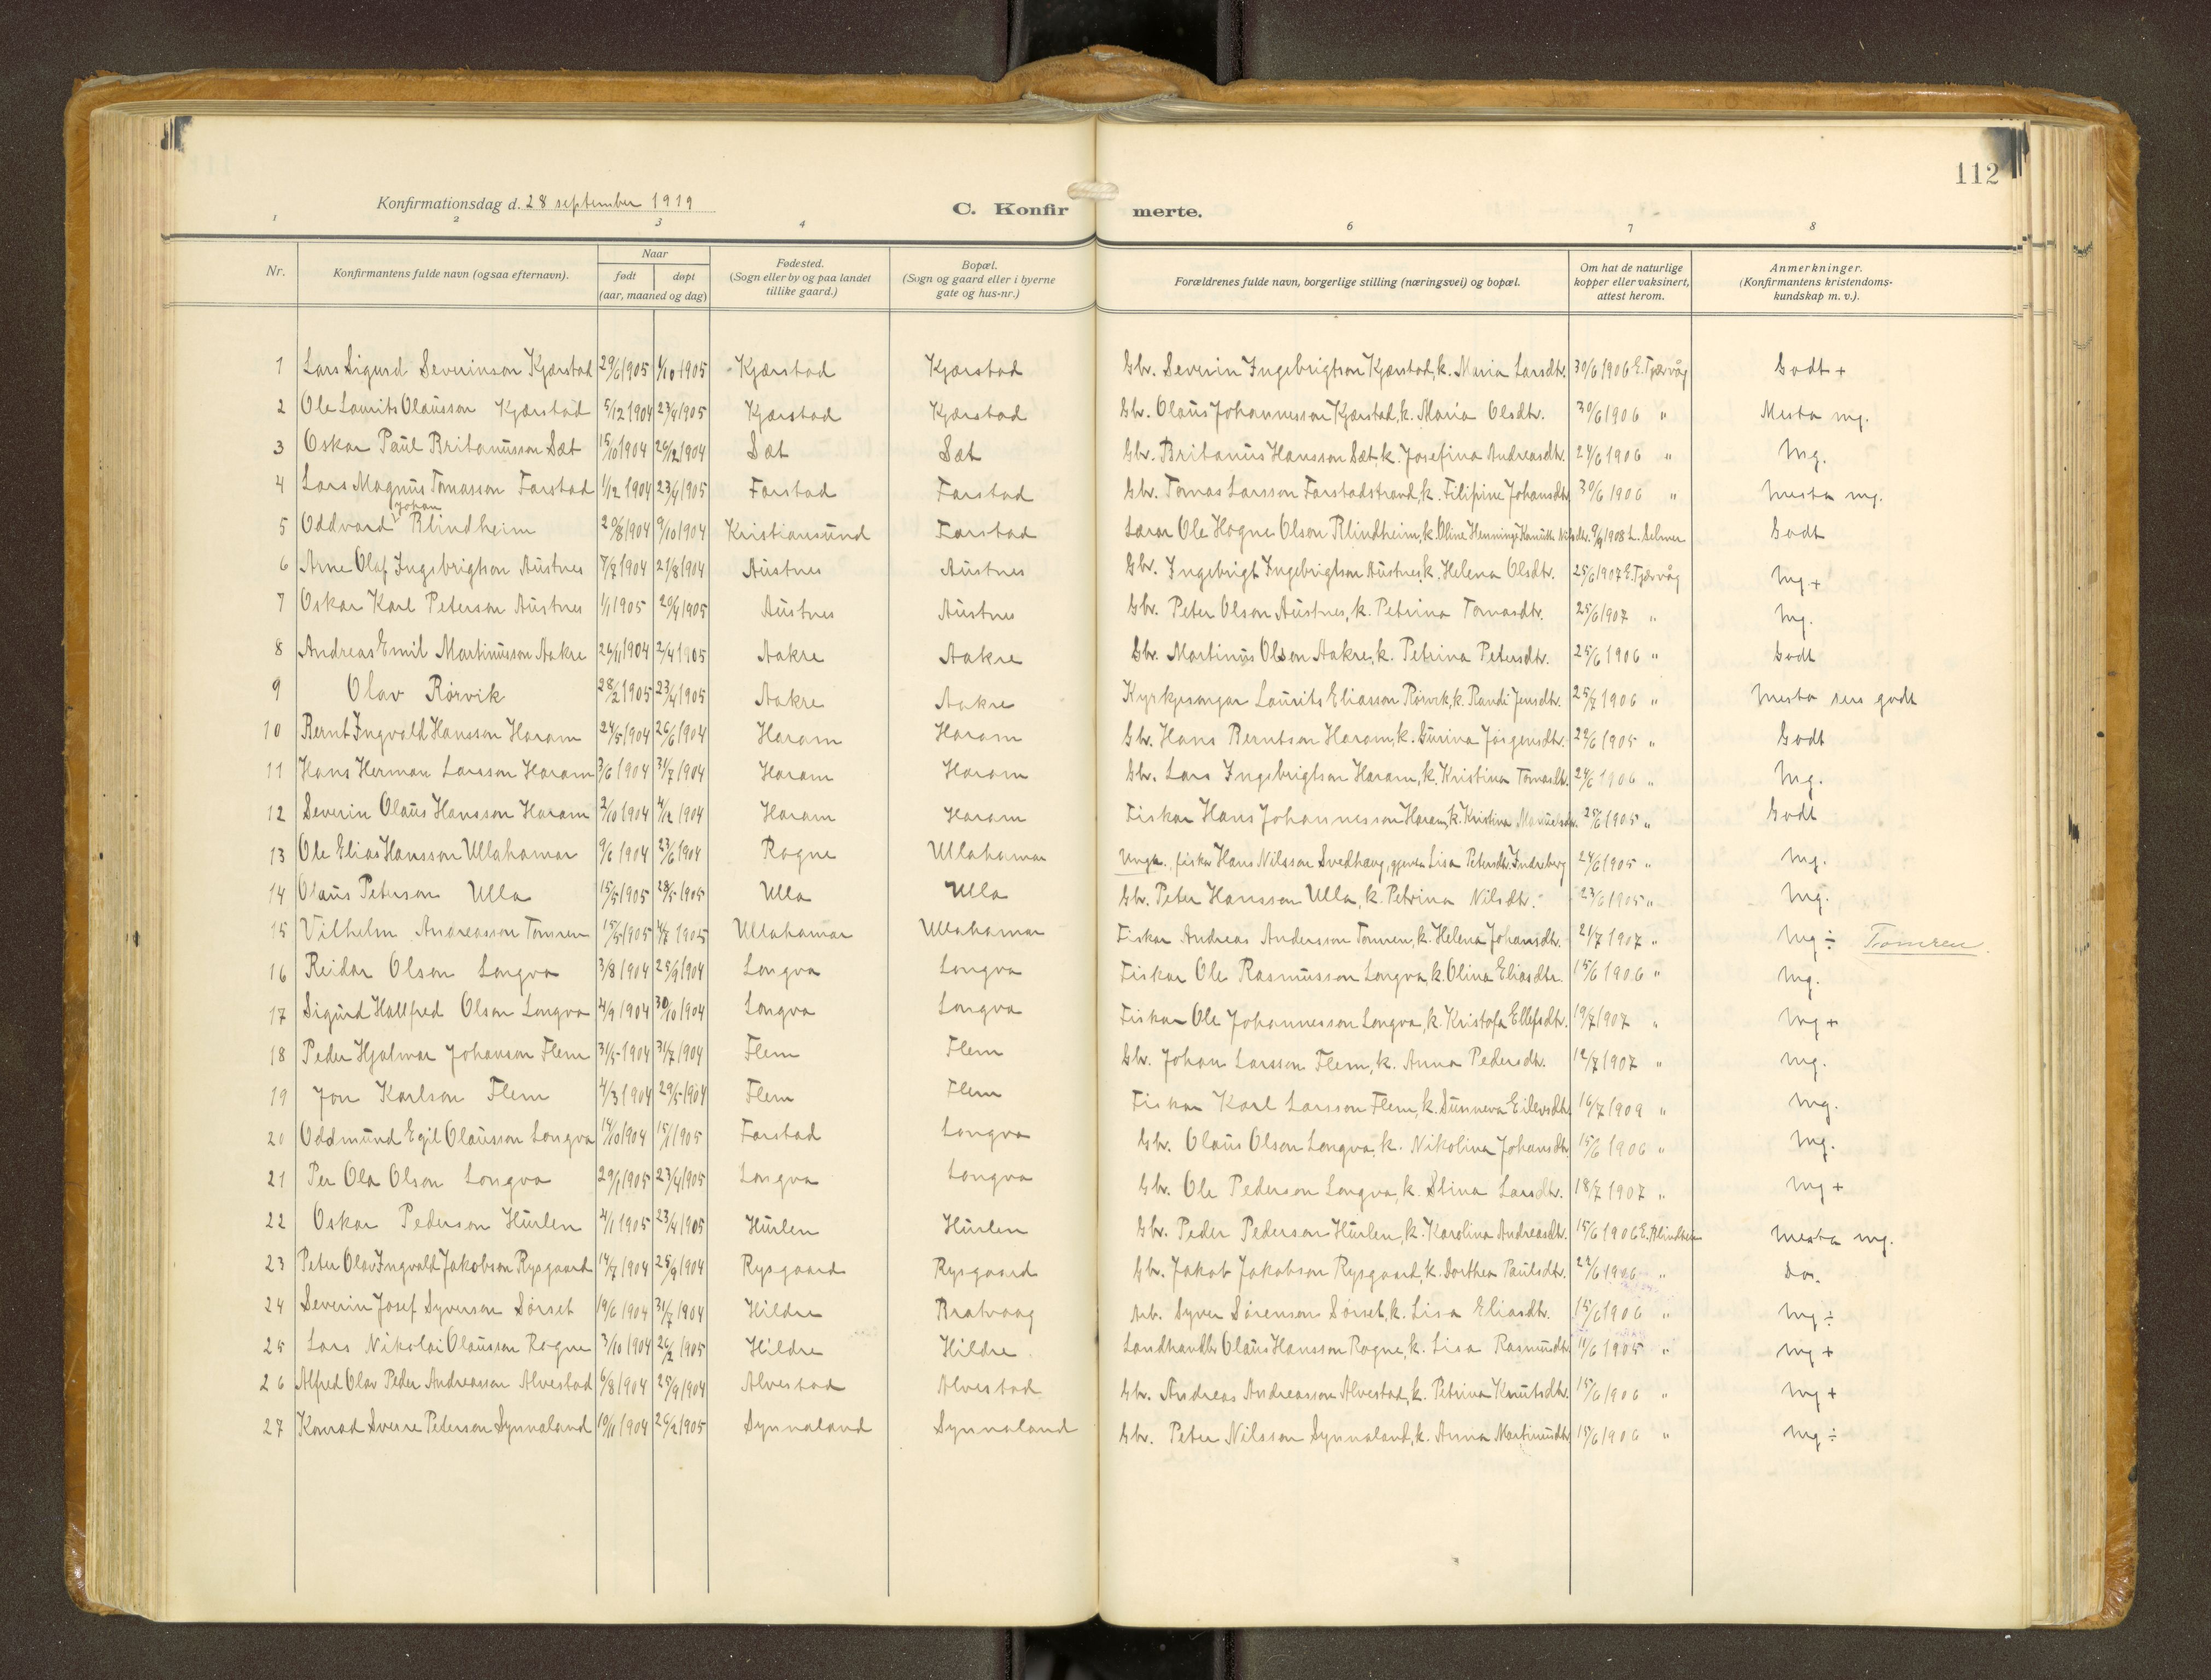 112
Konfirmationsdag d. 28 september 1919
C. Konfirmerte.
1 2 3 4 6 7 8
Nr. | Konfirmantens fulde navn (ogsaa efternavn). | Naar født døpt (aar, maaned og dag) | Fødested. (Sogn eller by og paa landet tillike gaard.) | Bopæl. (Sogn og gaard eller i byerne gate og hus-nr.) | Forældrenes fulde navn, borgerlige stilling (næringsvei) og bopæl. | Om hat de naturlige kopper eller vaksinert, attest herom. | Anmerkninger. (Konfirmantens kristendoms-kundskap m. v.).
1 Lars Sigurd Severinson Kjærstad 29/6 1905 1/10 1905 Kjærstad Kjærstad Gbr. Severin Ingebrigtson Kjærstad, k. Maria Larsdtr. 30/6 1906 E. Tjærvåg Godt +
2 Ole Laurits Olausson Kjærstad 5/12 1904 23/4 1905 Kjærstad Kjærstad Gbr. Olaus Johannesson Kjærstad, k. Maria Olsdtr. 30/6 1906 " Mesta mg.
3 Oskar Paul Britanusson Sæt 15/10 1904 26/12 1904 Sæt Sæt Gbr. Britanus Hansson Sæt, k. Josefina Andreasdtr. 24/6 1906 " Mg.
4 Lars Magnus Tomasson Farstad 1/12 1904 23/4 1905 Farstad Farstad Gbr. Tomas Larsson Farstadstrand, k. Filipine Johansdtr. 30/6 1906 " Mesta mg.
5 Oddvard Johan Blindheim 20/8 1904 9/10 1904 Kristiansund Farstad Lærar Ole Hogne Olson Blindheim, k. Oline Henninge Kanutte Nilsdtr. 9/9 1908 L. Selmer Godt
6 Arne Olaf Ingebrigtson Austnes 7/7 1904 21/8 1904 Austnes Austnes Gbr. Ingebrigt Ingebrigtson Austnes, k. Helena Olsdtr. 25/6 1907 E. Tjærvåg Mg +
7 Oskar Karl Peterson Austnes 1/1 1905 20/4 1905 Austnes Austnes Gbr. Peter Olson Austnes, k. Petrina Tomasdtr. 25/6 1907 " Mg.
8 Andreas Emil Martinusson Aakre 26/11 1904 2/4 1905 Aakre Aakre Gbr. Martinus Olsen Aakre, k. Petrina Petersdtr. 25/6 1906 " Godt
9 Olav Rørvik 28/2 1905 23/4 1905 Aakre Aakre Kyrkjesongar Laurits Eliasson Rørvik, k. Randi Jensdtr. 25/7 1906 " Mesta sers godt
10 Bernt Ingvald Hansson Haram 24/5 1904 26/6 1904 Haram Haram Gbr. Hans Berntson Haram, k. Gurina Jørgensdtr. 22/6 1905 " Godt
11 Hans Herman Larsson Haram 3/6 1904 31/7 1904 Haram Haram Gbr. Lars Ingebrigtson Haram, k. Kristina Tomasdtr. 24/6 1906 " Mg.
12 Severin Olaus Hansson Haram 2/10 1904 4/12 1904 Haram Haram Fiskar Hans Johannesson Haram, k. Kristina 25/6 1905 " Godt
13 Ole Elias Hansson Ullahamar 9/6 1904 23/6 1904 Rogne Ullahamar Ungk. fiskar Hans Nilsson Svedhaug, gjenta Lisa Petersdtr. Indreberg 24/6 1905 " Mg.
14 Olaus Peterson Ulla 15/5 1905 28/5 1905 Ulla Ulla Gbr. Peter Hansson Ulla, k. Petrina Nilsdtr. 23/6 1905 " Mg.
15 Vilhelm Andreasson Tomren 15/5 1905 4/7 1905 Ullahamar Ullahamar Fiskar Andreas Andersson Tomren, k. Helena Johansdtr. 21/7 1907 " Mg ÷ Tomren.
16 Reidar Olson Longva 3/8 1904 25/9 1904 Longva Longva Fiskar Ole Rasmusson Longva, k. Olina Eliasdtr. 15/6 1906 " Mg.
17 Sigurd Hallfred Olson Longva 4/9 1904 30/10 1904 Longva Longva Fiskar Ole Johannesson Longva, k. Kristofa Ellefsdtr. 19/7 1907 " Mg +
18 Peder Hjalmar Johanson Flem 31/5 1904 31/7 1904 Flem Flem Gbr. Johan Larsson Flem, k. Anna Pedersdtr. 12/7 1907 " Mg.
19 Jon Karlson Flem 4/3 1904 29/5 1904 Flem Flem Fiskar Karl Larsson Flem, k. Sunneva Eilevsdtr. 16/7 1909 " Mg.
20 Oddmund Egil Olausson Longva 14/10 1904 15/1 1905 Farstad Longva Gbr. Olaus Olson Longva, k. Nikolina Johansdtr. 15/6 1906 " Mg.
21 Per Ola Olson Longva 29/1 1905 23/4 1905 Longva Longva Gbr. Ole Pederson Longva, k. Stina Larsdtr. 18/7 1907 " Mg +
22 Oskar Pederson Hurlen 4/1 1905 23/4 1905 Hurlen Hurlen Gbr. Peder Pederson Hurlen, k. Karolina Andreasdtr. 15/6 1906 E. Blindheim Mesta mg.
23 Peter Olav Ingvald Jakobson Rysgaard 14/7 1904 25/9 1904 Rysgaard Rysgaard Gbr. Jakob Jakobson Rysgaard, k. Dorthea Paulsdtr. 22/6 1906 " Do.
24 Severin Josef Syverson Sørset 19/6 1904 31/7 1904 Hildre Bratvaag Arb. Syver Sørenson Sørset, k. Lisa Eliasdtr. 15/6 1906 " Mg ÷
25 Lars Nikolai Olausson Rogne 3/10 1904 26/2 1905 Hildre Hildre Landhandlr Olaus Hansson Rogne, k. Lisa Rasmusdtr. 11/6 1905 " Mg +
26 Alfred Olav Peder Andreasson Alvestad 6/8 1904 25/9 1904 Alvestad Alvestad Gbr. Andreas Andreasson Alvestad, k. Petrina Knutsdtr. 15/6 1906 " Mg +
27 Konrad Sverre Peterson Synnaland 10/11 1904 26/2 1905 Synnaland Synnaland Gbr. Peter Nilsson Synnaland, k. Anna Martinusdtr. 15/6 1906 " Mg ÷